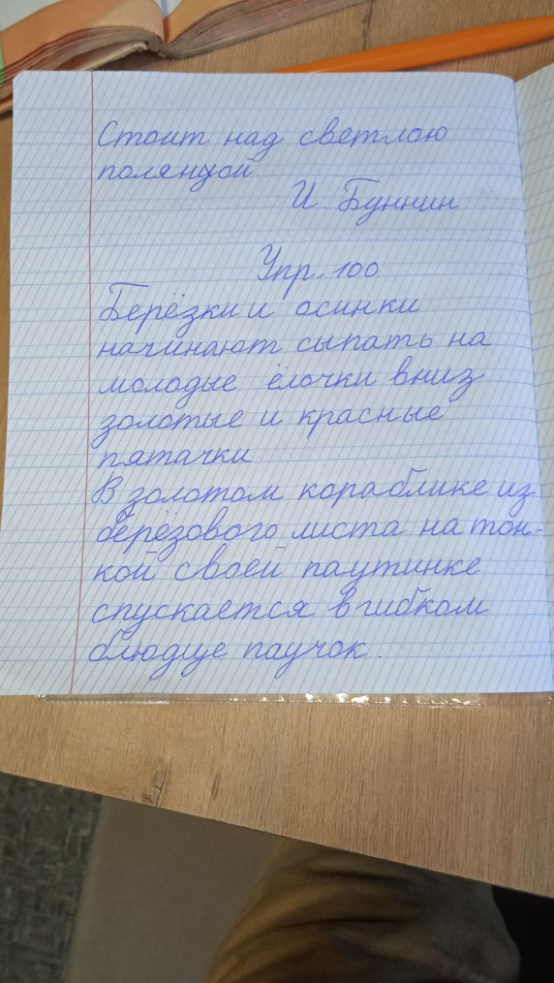 Стоит над светлою
поляной.
И. Буннин
Упр. 100
Берёзки и осинки
начинают сыпать на
молодые ёлочки вниз
золотые и красные
пятачки
В золотом кораблике из
берёзового листа на тон-
кой своей паутинке
спускается в гибком
блюдце паучок.